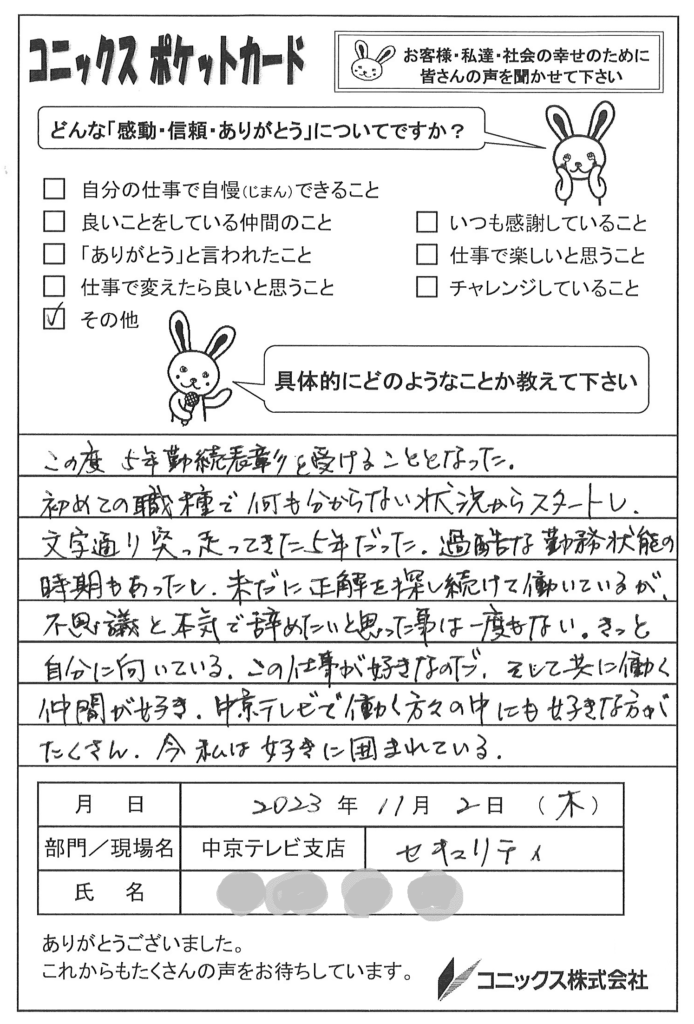 コニックス ポケットカード
お客様・私達・社会の幸せのために
皆さんの声を聞かせて下さい
どんな「感動・信頼・ありがとう」についてですか？
自分の仕事で自慢(じまん)できること
良いことをしている仲間のこと
いつも感謝していること
「ありがとう」と言われたこと
仕事で楽しいと思うこと
仕事で変えたら良いと思うこと
チャレンジしていること
その他
具体的にどのようなことか教えて下さい
この度 5年勤続表彰を受けることとなった。
初めての職種で何も分からない状況からスタートし、
文字通り突っ走ってきた5年だった。過酷な勤務状態の
時期もあったし、未だに正解を探し続けて働いているが、
不思議と本気で辞めたいと思った事は一度もない。きっと
自分に向いている。この仕事が好きなのだ、そして共に働く
仲間が好き。中京テレビで働く方々の中にも好きな方が
たくさん。今私は好きに囲まれている。
月 日 2023 年 11 月 2 日 （木）
部門／現場名 中京テレビ支店 セキュリティ
氏 名
ありがとうございました。
これからもたくさんの声をお待ちしています。
コニックス株式会社